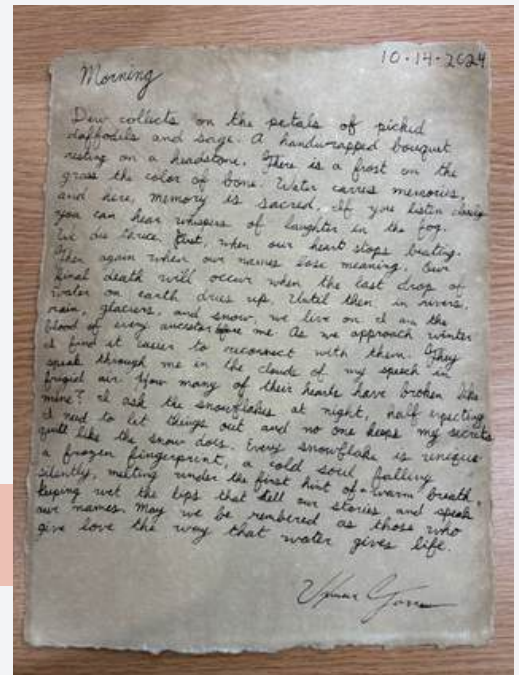 10-14-2024
Morning
Dew collects on the petals of picked
daffodils and sage. A handwrapped bouquet
resting on a headstone. There is a frost on the
grass the color of bone. Water carries memories,
and here, memory is sacred. If you listen closely
you can hear whispers of laughter in the fog.
We die thrice. First, when our heart stops beating.
Then again when our names lose meaning. Our
final death will occur when the last drop of
water on earth dries up. Until then, in rivers,
rain, glaciers, and snow, we live on. I am the
blood of every ancestor before me. As we approach winter
I find it easier to reconnect with them. They
speak through me in the clouds of my speech in
frigid air. How many of their hearts have broken like
mine? I ask the snowflakes at night, half expecting
I need to let things out and no one keeps my secrets
quite like the snow does. Every snowflake is unique
a frozen fingerprint, a cold soul falling
silently, melting under the first hint of a warm breath,
keeping wet the lips that tell our stories and speak
our names. May we be rembered as those who
give love the way that water gives life.